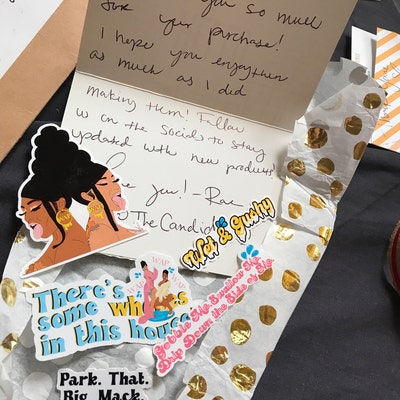 you so much
for your purchase!
I hope you enjoy them
as much as I did
making them! Follow
us on the socials to stay
updated with new products!
you! - Rae
The Candid
Wet & Gushy
WAP
WAP
There's
some
in this house
Gobble Me, Swallow Me,
Drip Down the Side of Me
Park. That.
Big. Mack.